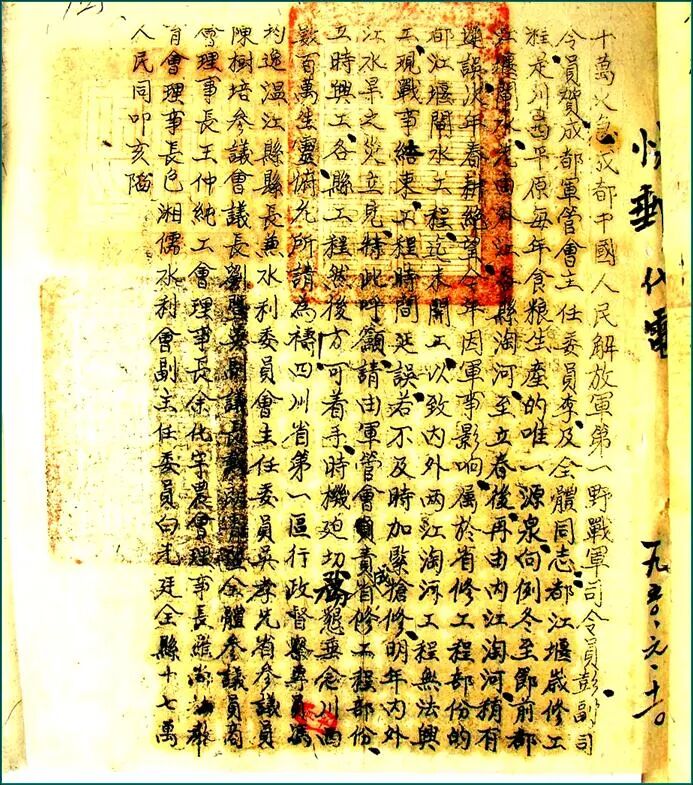 快郵代電
一九五〇.元.十.
十萬火急成都中國人民解放軍第一野戰軍司令員彭副司
令員賀成都軍管會主任委員李及全體同志都江堰歲修工
程是川西平原每年食粮生產的唯一源泉向例冬至節前都
江堰閘水先由外江各縣淘河至立春後再由內江淘河稍有
遲誤次年春耕絕望今年因軍事影响屬於省修工程部份的
都江堰閘水工程迄未開工以致內外两江淘河工程無法興
工現戰事結束工程時間延誤若不及時加緊搶修明年內外
江水旱之災立見特此呼籲請由軍管會負責省修工程部份
立時興工各縣工程然後方可着手時機迫切務懇垂念川西
數百萬生靈俯允所請為禱四川省第一區行政督察專員馮
均逸溫江縣縣長兼水利委員會主任委員吳孝先省參議員
陳樹培參議會議長劉 副議長 全體參議員商
會理事長王仲純工會理事長余化宗農會理事長 教
育會理事長包湘儒水利會副主任委員白光廷全縣十七萬
人民同叩亥